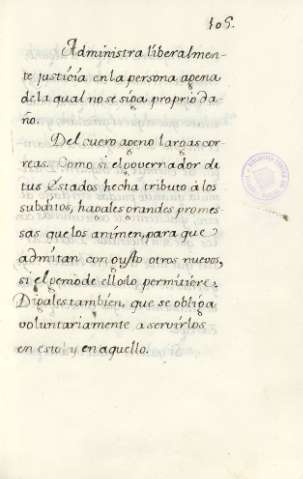 105.
Administra liberalmen-
te justicia en la persona agena
de la qual no se siga proprio da
ño.
Del cuero ageno largas cor
reas. Como si el governador de
tus Estados hecha tributo à los
subditos, hagales grandes prome
sas que los animen, para que
admitan con gusto otros nuevos,
si el genio de ellos lo permitiere.
Digales tambien, que se obliga
voluntariamente a servirlos
en esto y en aquello.